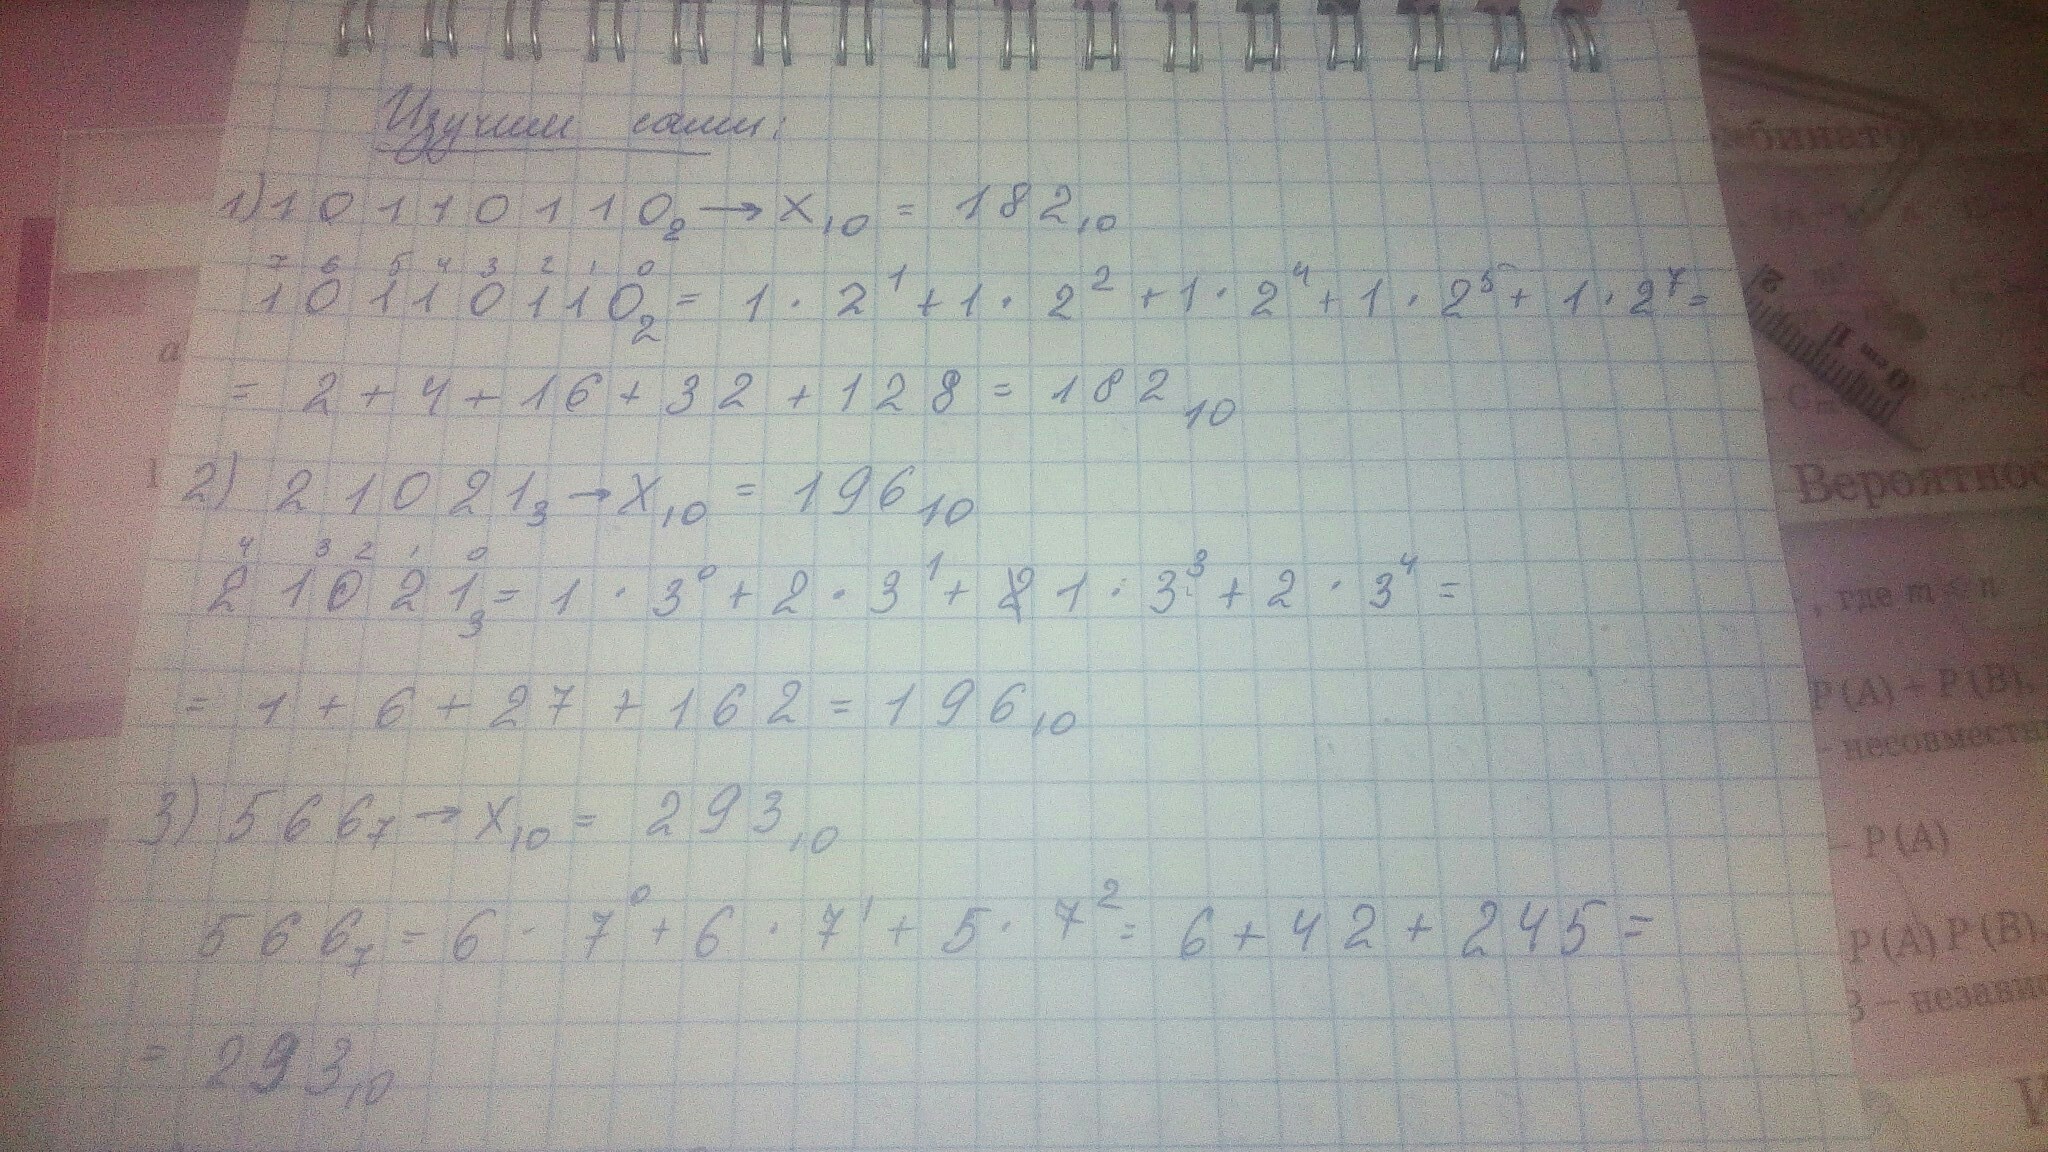 Изучим сами:
1) 10110110₂ → X₁₀ = 182₁₀
7 6 5 4 3 2 1 0
10110110₂ = 1 · 2¹ + 1 · 2² + 1 · 2⁴ + 1 · 2⁵ + 1 · 2⁷ =
= 2 + 4 + 16 + 32 + 128 = 182₁₀
2) 21021₃ → X₁₀ = 196₁₀
4 3 2 1 0
21021₃ = 1 · 3⁰ + 2 · 3¹ + 1 · 3³ + 2 · 3⁴ =
= 1 + 6 + 27 + 162 = 196₁₀
3) 566₇ → X₁₀ = 293₁₀
566₇ = 6 · 7⁰ + 6 · 7¹ + 5 · 7² = 6 + 42 + 245 =
= 293₁₀
Вероятнос
, где m ≤ n
P (A) + P (B),
– несовмести
– P (A)
P (A) P (B),
B – независ